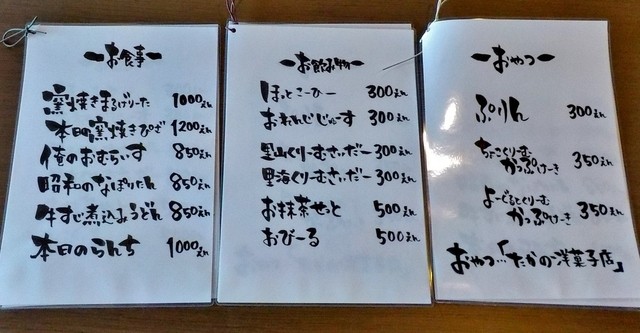 お食事
窯焼きまるげりーた 1000えん
本日の窯焼きぴざ 1200えん
俺のおむらいす 850えん
昭和のなぽりたん 850えん
牛すじ煮込みうどん 850えん
本日のらんち 1000えん
お飲み物
ほっとこーひー 300えん
おれんじじゅーす 300えん
里山くりーむさいだー 300えん
里海くりーむさいだー 300えん
お抹茶せっと 500えん
おびーる 500えん
おやつ
ぷりん 300えん
ちょこくりーむ
かっぷけーき 350えん
よーぐるとくりーむ
かっぷけーき 350えん
おやつ…「たかの洋菓子店」